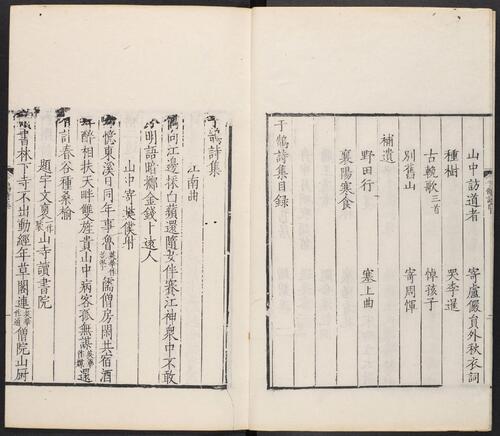 山中訪道者　寄盧儼員外秋衣詞
種樹　哭李暹
古輓歌三首　悼孩子
別舊山　寄周惲
補遺
野田行　塞上曲
襄陽寒食
于鵠詩集目錄
于鵠詩集
江南曲
偶向江邊採白蘋還隨女伴賽江神眾中不敢
明語暗擲金錢卜遠人
山中寄樊僕射
憶東溪日同年事魯英華作若學儒僧房閑共宿酒
醉相扶天畔雙旌貴山中病客孤無謀英華作媒還
有計春谷種桑榆
題宇文褧一作裴山寺讀書院
書林下寺不出動經年草閣連英華作通僧院山厨